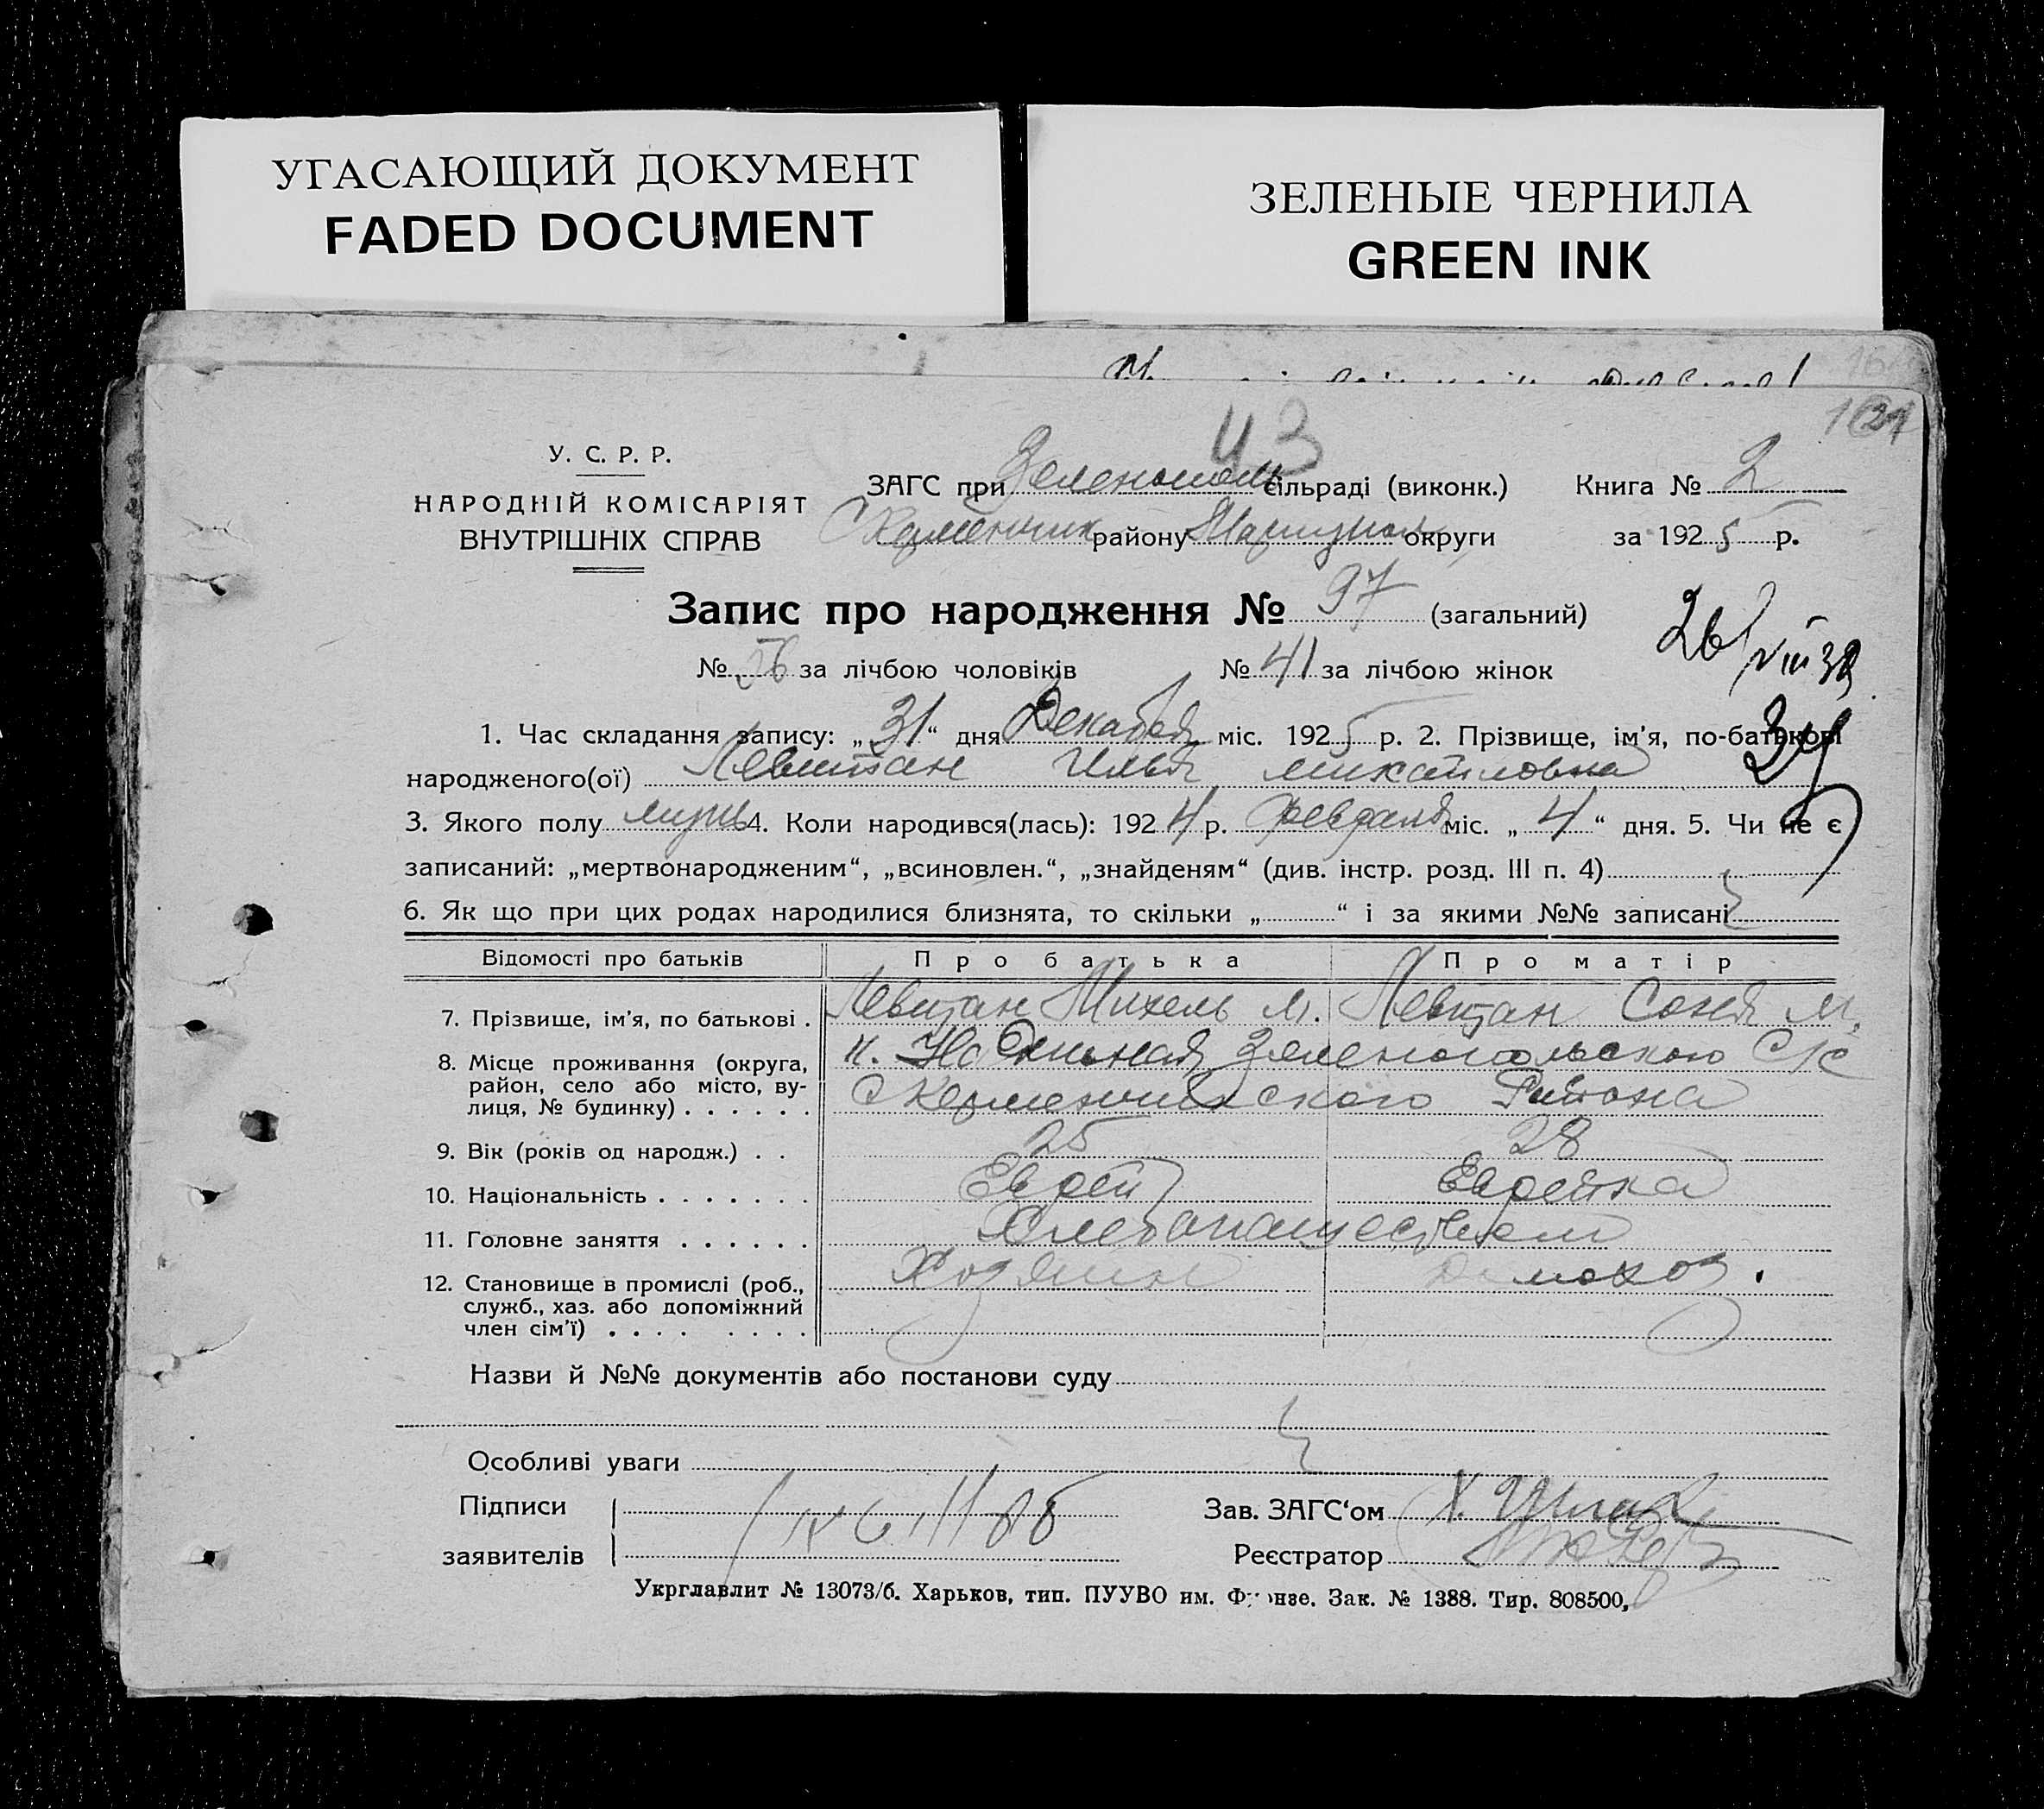 УГАСАЮЩИЙ ДОКУМЕНТ
FADED DOCUMENT
ЗЕЛЕНЫЕ ЧЕРНИЛА
GREEN INK
43
У. С. Р. Р.
НАРОДНІЙ КОМІСАРІЯТ
ВНУТРІШНІХ СПРАВ
ЗАГС при Зеленополь сільраді (виконк.) Книга № 2
району Мариуполь округи за 1925 р.
Запис про народження № 97 (загальний)
№ 56 за лічбою чоловіків № 41 за лічбою жінок
1. Час складання запису: „31“ дня Декабря міс. 1925 р. 2. Прізвище, ім’я, по-батькові
народженого(ої) Левитан Илья Михайловна
3. Якого полу мужь 4. Коли народився(лась): 1924 р. февраля міс. „4“ дня. 5. Чи не є
записаний: „мертвонародженим“, „всиновлен.“, „знайденям“ (див. інстр. розд. III п. 4)
6. Як що при цих родах народилися близнята, то скільки „ “ і за якими №№ записані
Відомості про батьків Про батька Про матір
7. Прізвище, ім’я, по батькові . Левитан Михель М. Левитан Соня М.
8. Місце проживання (округа, Зеленопольского С/с
район, село або місто, ву- Керменчикского Района
лиця, № будинку) . . . . . .
9. Вік (років од народж.) . . 25 28
10. Національність . . . . . . . Еврей Еврейка
11. Головне заняття . . . . . . Хлебопашеством
12. Становище в промислі (роб., Хозяин Домохоз.
служб., хаз. або допоміжний
член сім’ї) . . . . . . . .
Назви й №№ документів або постанови суду
Особливі уваги
Підписи
заявителів
Зав. ЗАГС‘ом
Реєстратор
Укрглавлит № 13073/б. Харьков, тип. ПУУВО им. Фрунзе. Зак. № 1388. Тир. 808500,